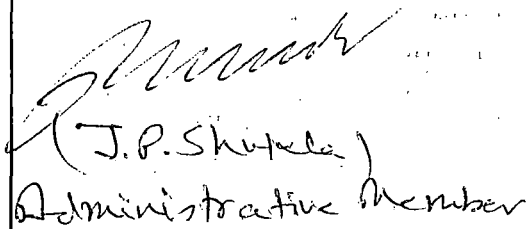 (J.P. Shukla)
Administrative Member